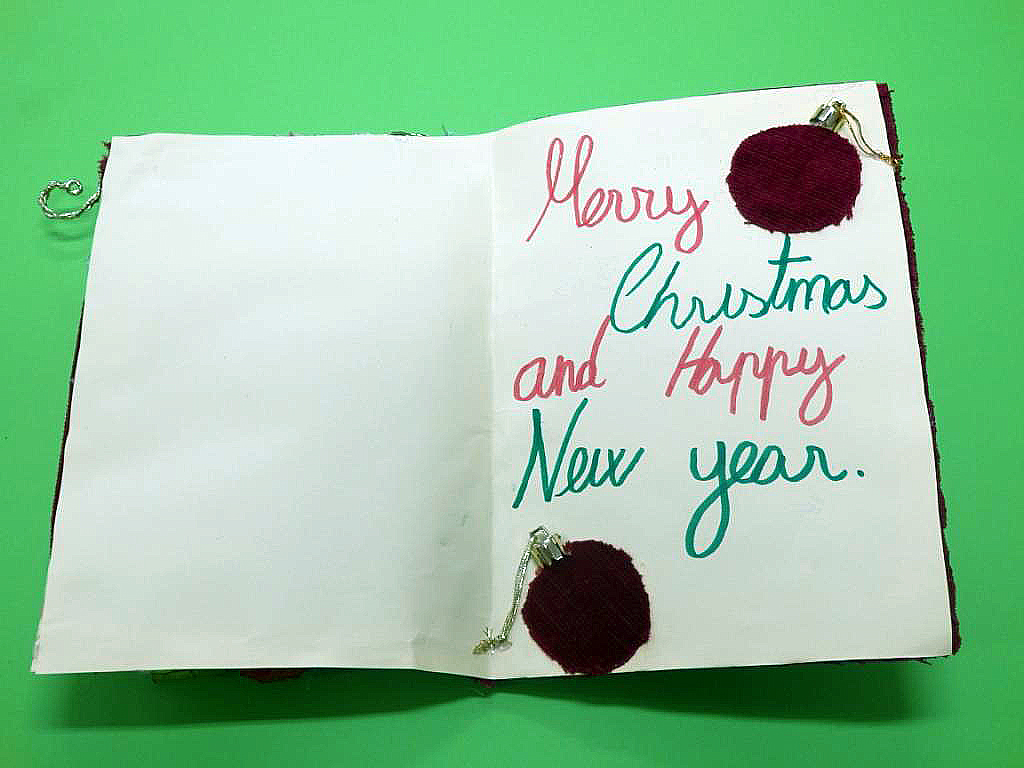 Merry
Christmas
and Happy
New year.